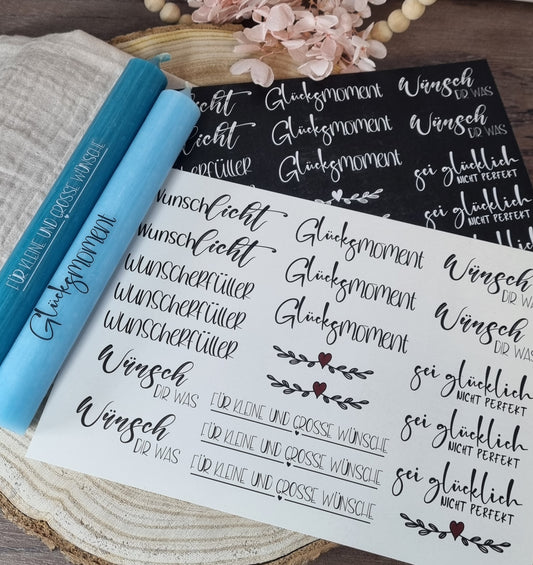 FÜR KLEINE UND GROSSE WÜNSCHE
Glücksmoment
Glücksmoment
Wünsch
DIR WAS
licht
Glücksmoment
Wünsch
DIR WAS
Wunscherfüller
Glücksmoment
sei glücklich
NICHT PERFEKT
sei glücklich
NICHT PERFEKT
Wunschlicht
Glücksmoment
Wünsch
DIR WAS
Wunschlicht
Glücksmoment
Wünsch
DIR WAS
WUNSCHERFÜLLER
WUNSCHERFÜLLER
WUNSCHERFÜLLER
Glücksmoment
sei glücklich
NICHT PERFEKT
Wünsch
DIR WAS
sei glücklich
NICHT PERFEKT
Wünsch
DIR WAS
FÜR KLEINE UND GROSSE WÜNSCHE
FÜR KLEINE UND GROSSE WÜNSCHE
FÜR KLEINE UND GROSSE WÜNSCHE
sei glücklich
NICHT PERFEKT